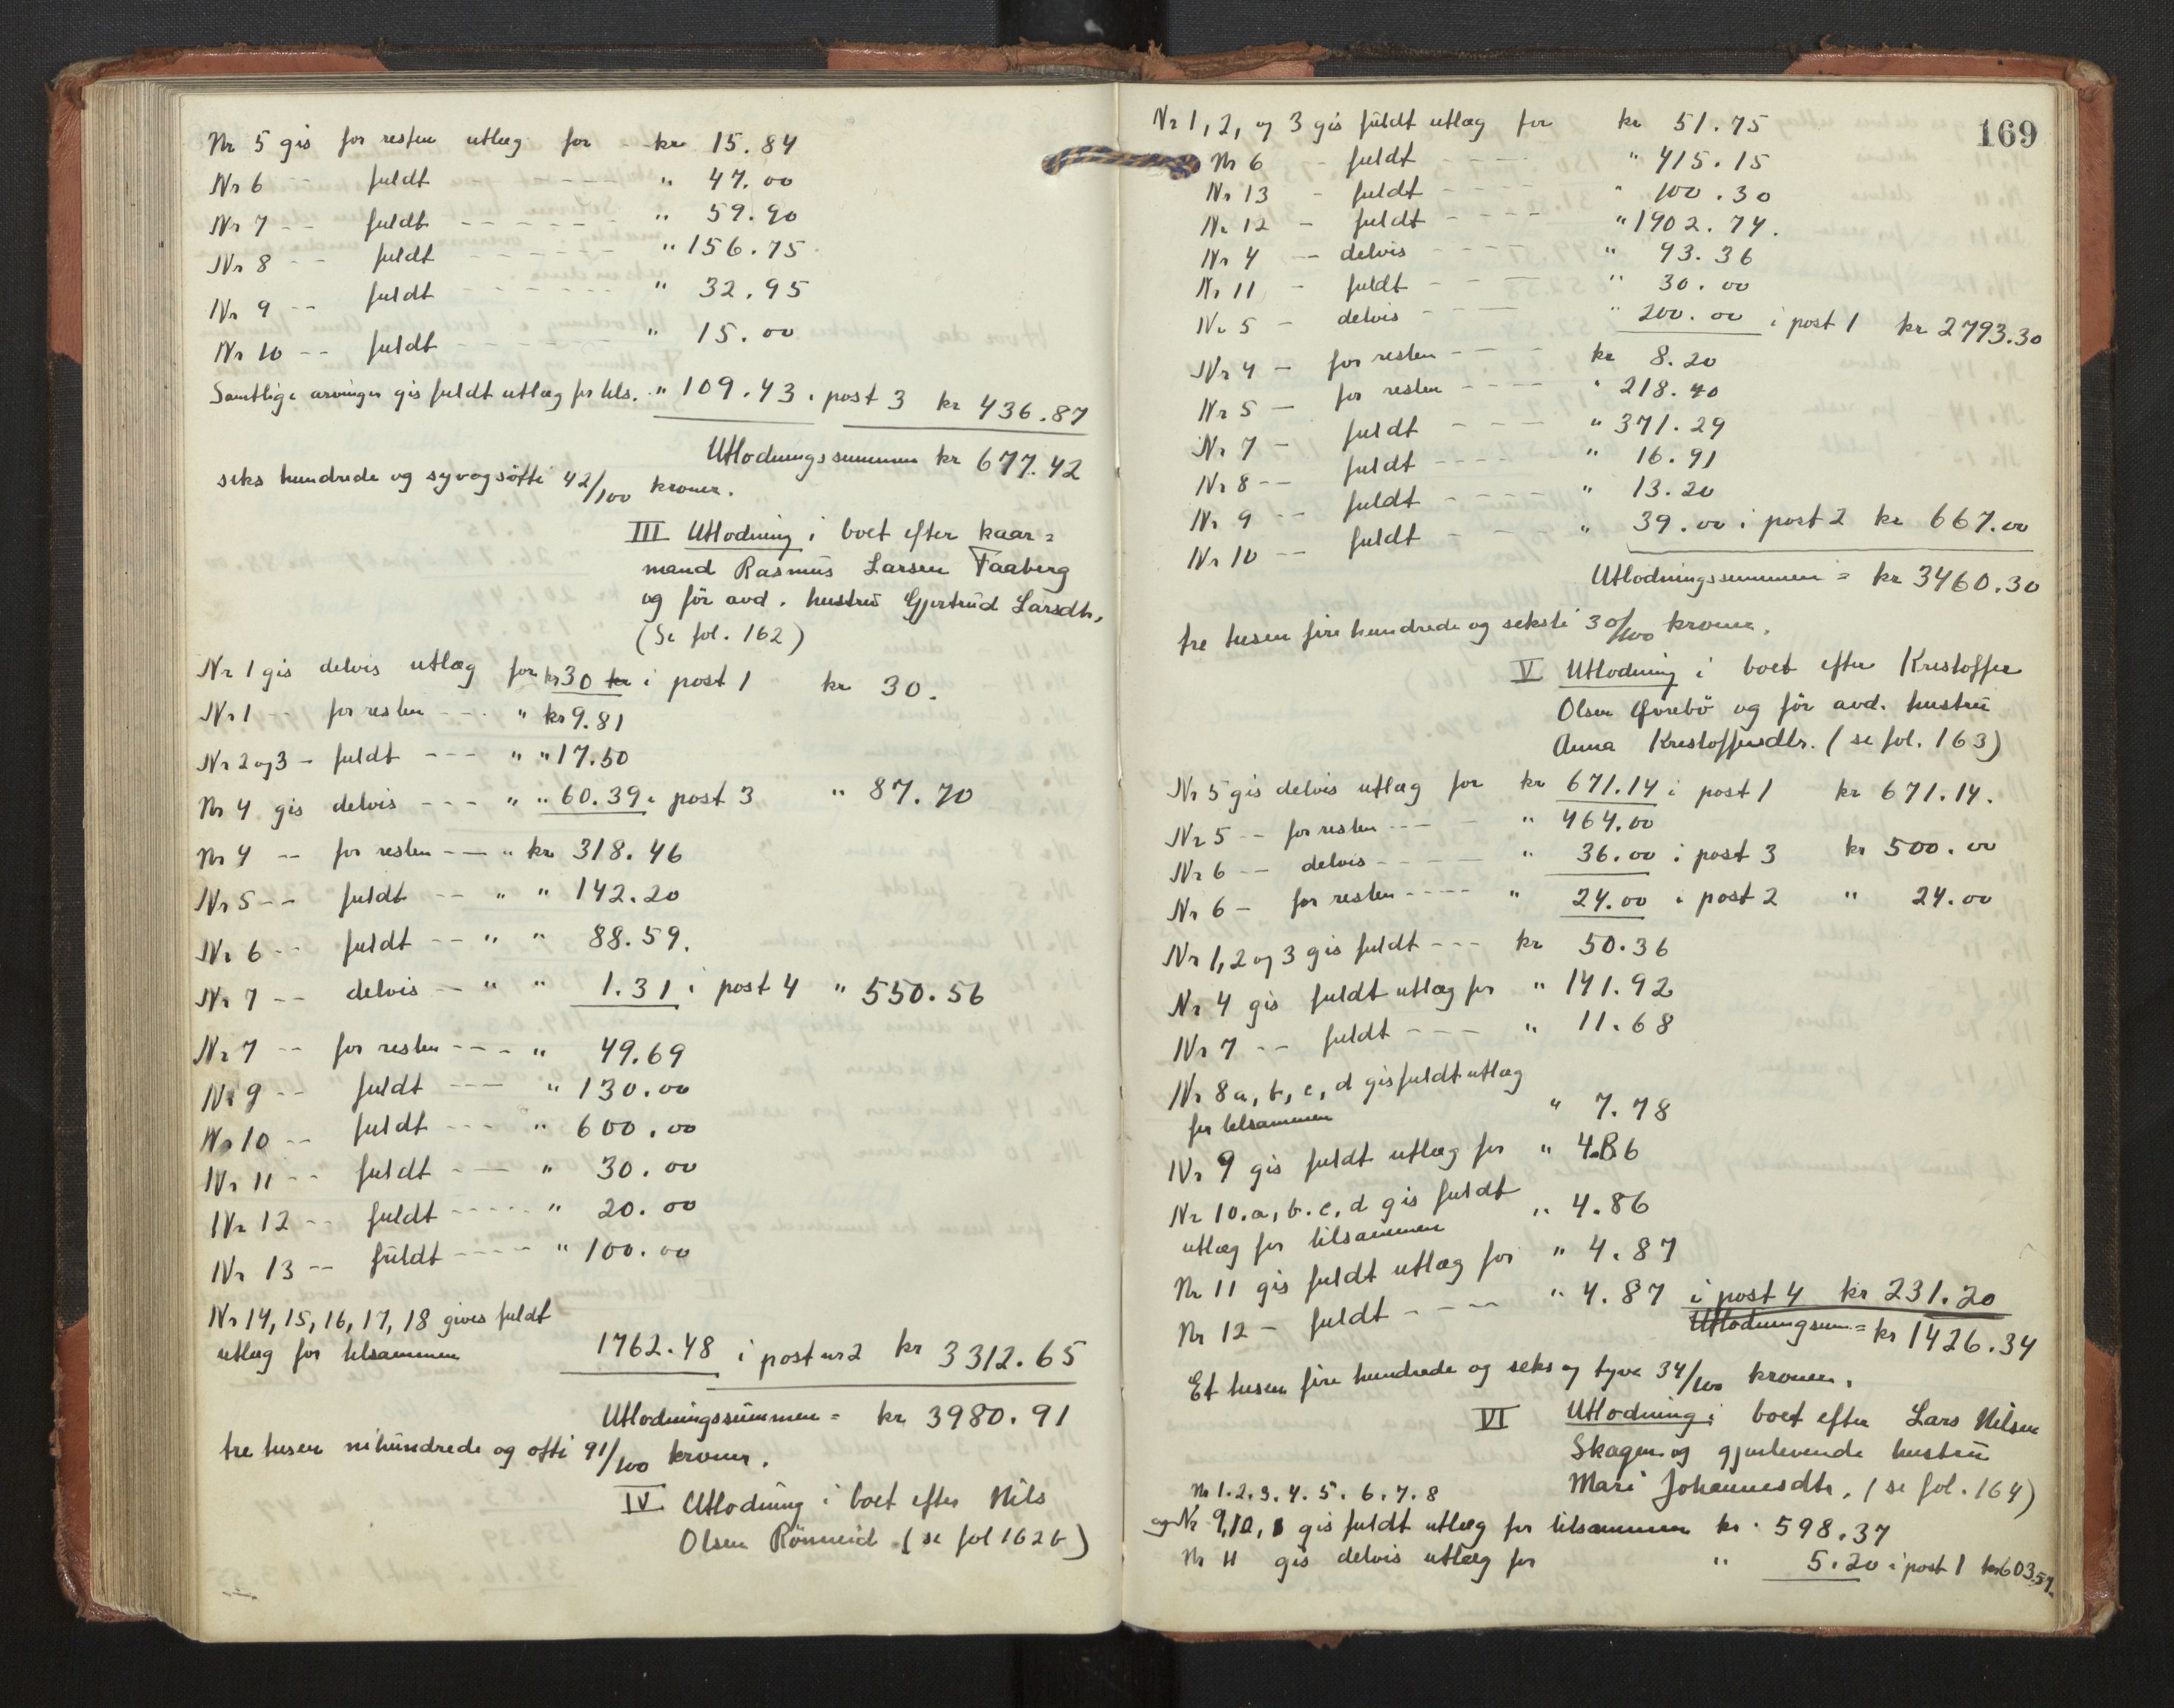 Nr 5 gis for resten utlæg for - kr 15.84
Nr 6 -- fuldt ---- " 47.00
Nr 7 -- fuldt ----- " 59.90
Nr 8 -- fuldt ----- " 156.75
Nr 9 -- fuldt ----- " 32.95
Nr 10 -- fuldt ----- " 15.00
Samtlige arvinger gis fuldt utlæg for tils. " 109.43 i post 3 kr 436.87
Utlodningssummen kr 677.42
seks hundrede og syvogsøtti 42/100 kroner.
III Utlodning i boet efter kaar=
mand Rasmus Larsen Faaberg
og før avd. hustru Gjertrud Larsdtr.
(Se fol. 162)
Nr 1 gis delvis utlæg for kr 30 kr i post 1 kr 30.
Nr 1 -- for resten --- " kr 9.81
Nr 2 og 3 - fuldt --- " " 17.50
Nr 4 gis delvis --- " " 60.39 i post 3 " 87.70
Nr 4 -- for resten --- " kr 318.46
Nr 5 -- fuldt -- " " 142.20
Nr 6 -- fuldt -- " " 88.59.
Nr 7 -- delvis -- " " 1.31 i post 4 " 550.56
Nr 7 -- for resten --- " 49.69
Nr 9 -- fuldt --- " 130.00
Nr 10 -- fuldt --- " 600.00
Nr 11 -- fuldt --- " 30.00
Nr 12 -- fuldt ---- " 20.00
Nr 13 -- fuldt ---- " 100.00
Nr 14, 15, 16, 17, 18 gives fuldt
utlæg for tilsammen 1762.48 i post nr 2 kr 3312.65
Utlodningssummen = kr 3980.91
tre tusen nihundrede og otti 91/100 kroner.
IV Utlodning i boet efter Nils
Olsen Rønneid (se fol 162 b)
169
Nr 1, 2, og 3 gis fuldt utlæg for kr 51.75
Nr 6 - fuldt ---- " 415.15
Nr 13 - fuldt ---- " 100.30
Nr 12 - fuldt ---- " 1902.74.
Nr 4 -- delvis ---- " 93.36
Nr 11 - fuldt --- " 30.00
Nr 5 - delvis ---- " 200.00 i post 1 kr 2793.30
Nr 4 - for resten --- kr 8.20
Nr 5 - for resten ---- " 218.40
Nr 7 - fuldt ---- " 371.29
Nr 8 -- fuldt ---- " 16.91
Nr 9 -- fuldt ---- " 13.20
Nr 10 -- fuldt ---- " 39.00 i post 2 kr 667.00
Utlodningssummen = kr 3460.30
tre tusen fire hundrede og seksti 30/100 kroner.
V Utlodning i boet efter Kristoffer
Olsen Øvrebø og før avd. hustru
Anna Kristoffersdtr. (se fol. 163)
Nr 5 gis delvis utlæg for kr 671.14 i post 1 kr 671.14.
Nr 5 -- for resten ---- " 464.00
Nr 6 -- delvis ---- " 36.00 i post 3 kr 500.00
Nr 6 - for resten ---- " 24.00 i post 2 " 24.00
Nr 1, 2 og 3 gis fuldt --- kr 50.36
Nr 4 gis fuldt utlæg for " 141.92
Nr 7 -- fuldt --- " 11.68
Nr 8 a, b, c, d gis fuldt utlæg
for tilsammen " 7.78
Nr 9 gis fuldt utlæg for " 4.86
Nr 10. a, b. c, d gis fuldt
utlæg for tilsammen " 4.86
Nr 11 gis fuldt utlæg for " 4.87
Nr 12 - fuldt ---- " 4.87 i post 4 kr 231.20
Utlodningsum = kr 1426.34
Et tusen fire hundrede og seks og tyve 34/100 kroner.
VI Utlodning i boet efter Lars Nilsen
Skagen og gjenlevende hustru
Mari Johannesdtr. (se fol. 164)
Nr 1. 2. 3. 4. 5. 6. 7. 8
og Nr 9, 10, gis fuldt utlæg for tilsammen kr. 598.37
Nr 11 gis delvis utlæg for " 5.20 i post 1 kr 603.57.